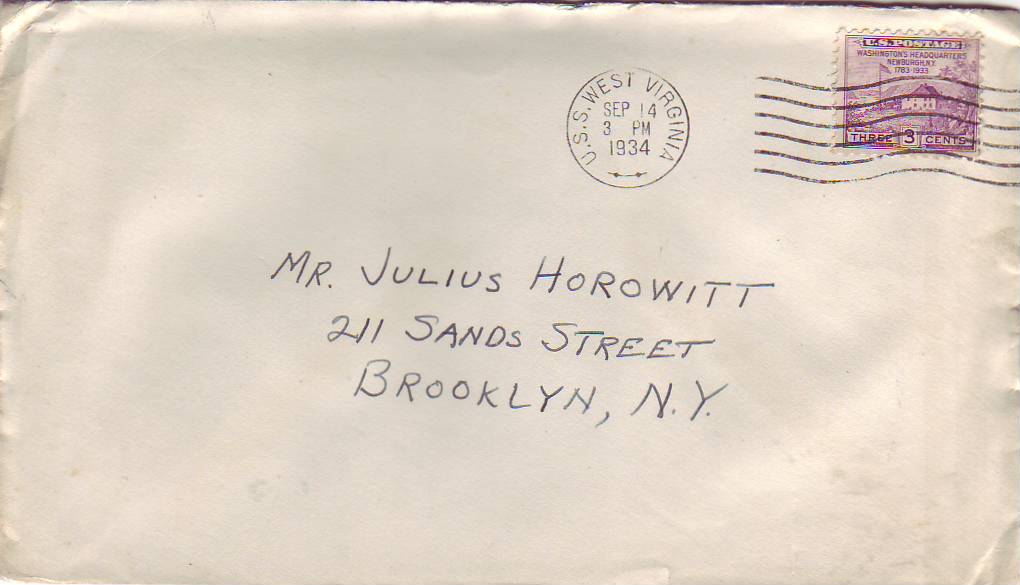 U.S. POSTAGE
WASHINGTON'S HEADQUARTERS
NEWBURGH, N.Y.
1783-1933
THREE 3 CENTS
U.S.S. WEST VIRGINIA
SEP 14
3 PM
1934
MR. JULIUS HOROWITT
211 SANDS STREET
BROOKLYN, N.Y.